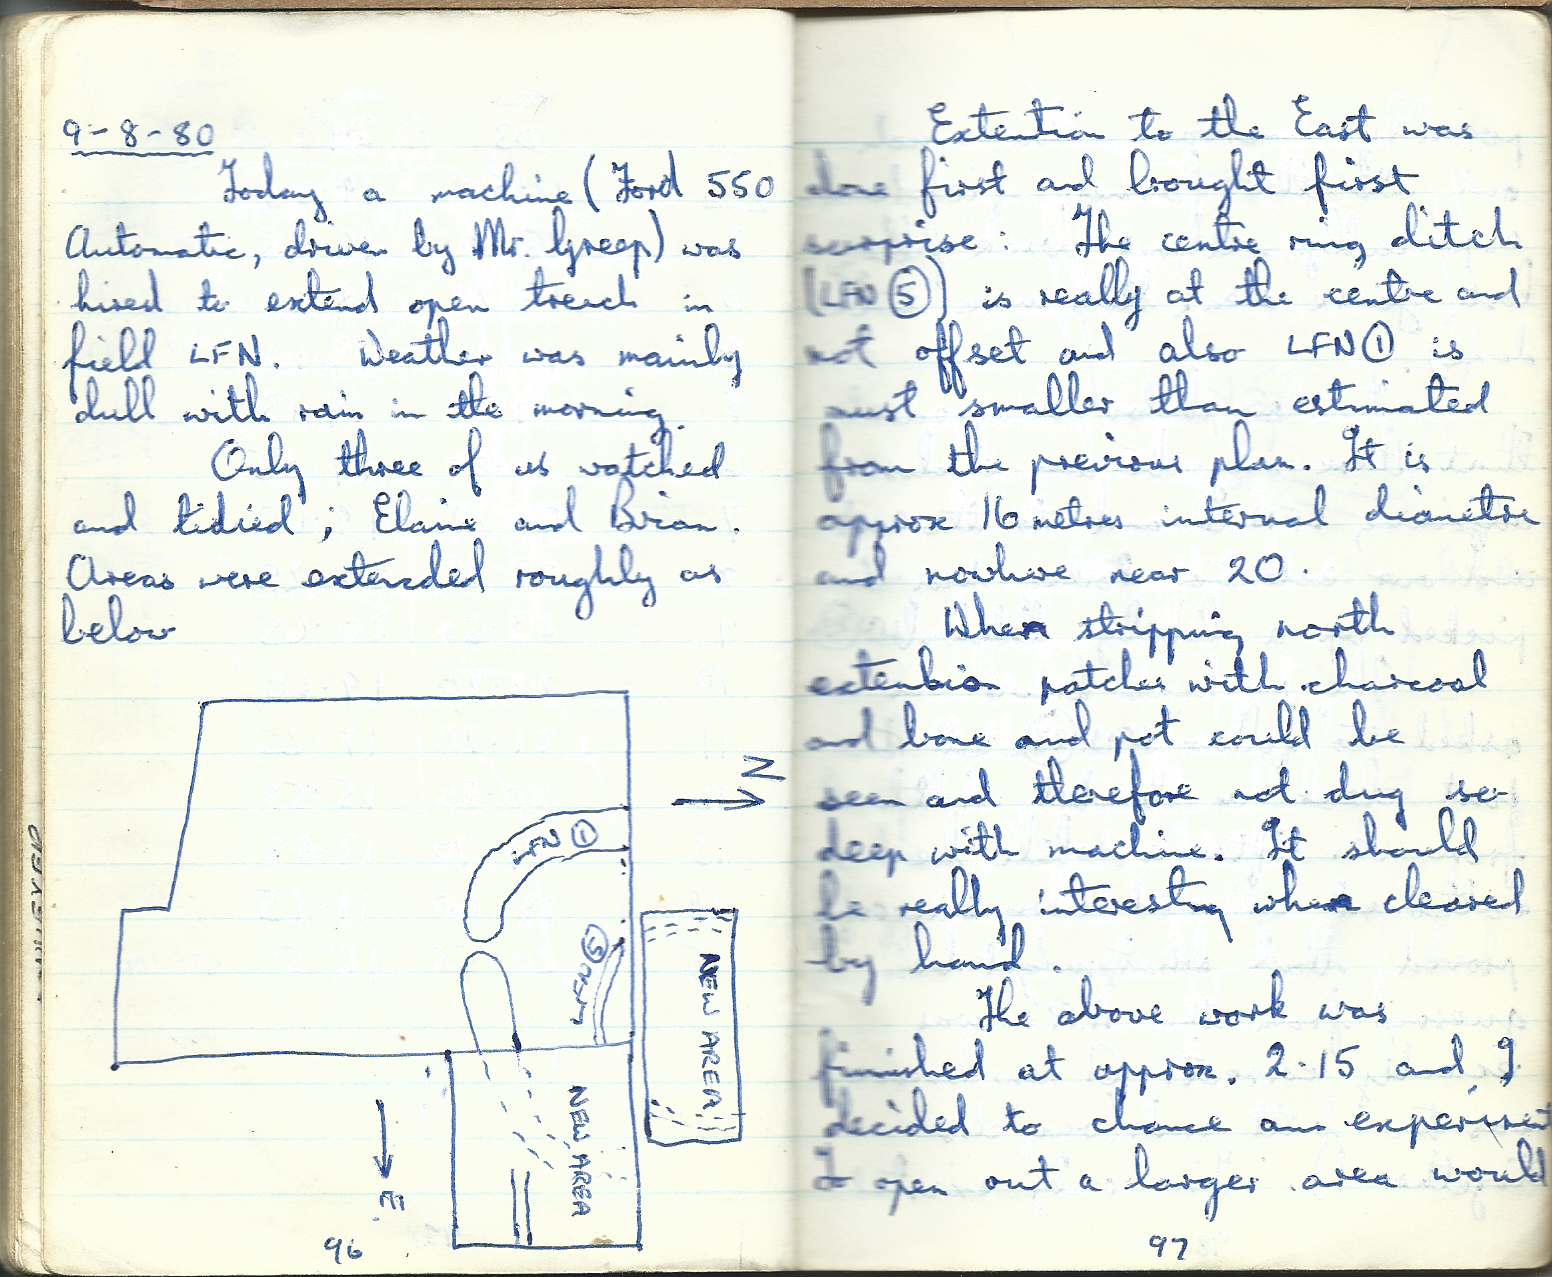 9-8-80
Today a machine (Ford 550
Automatic, driven by Mr. Greep) was
hired to extend open trench in
field LFN. Weather was mainly
dull with rain in the morning.
Only three of us watched
and tidied; Elaine and Brian.
Areas were extended roughly as
below
N
LFN ①
⑤
NEW AREA
NEW AREA
E
96
Extention to the East was
done first and brought first
surprise: The centre ring ditch
(LFN ⑤) is really at the centre and
not offset and also LFN ① is
must smaller than estimated
from the previous plan. It is
approx 16 metres internal diametre
and nowhere near 20.
When stripping north
extension patches with charcoal
and bone and pot could be
seen and therefore not dug so
deep with machine. It should
be really interesting when cleared
by hand.
The above work was
finished at approx. 2.15 and I
decided to chance an experiment
To open out a larger area would
97